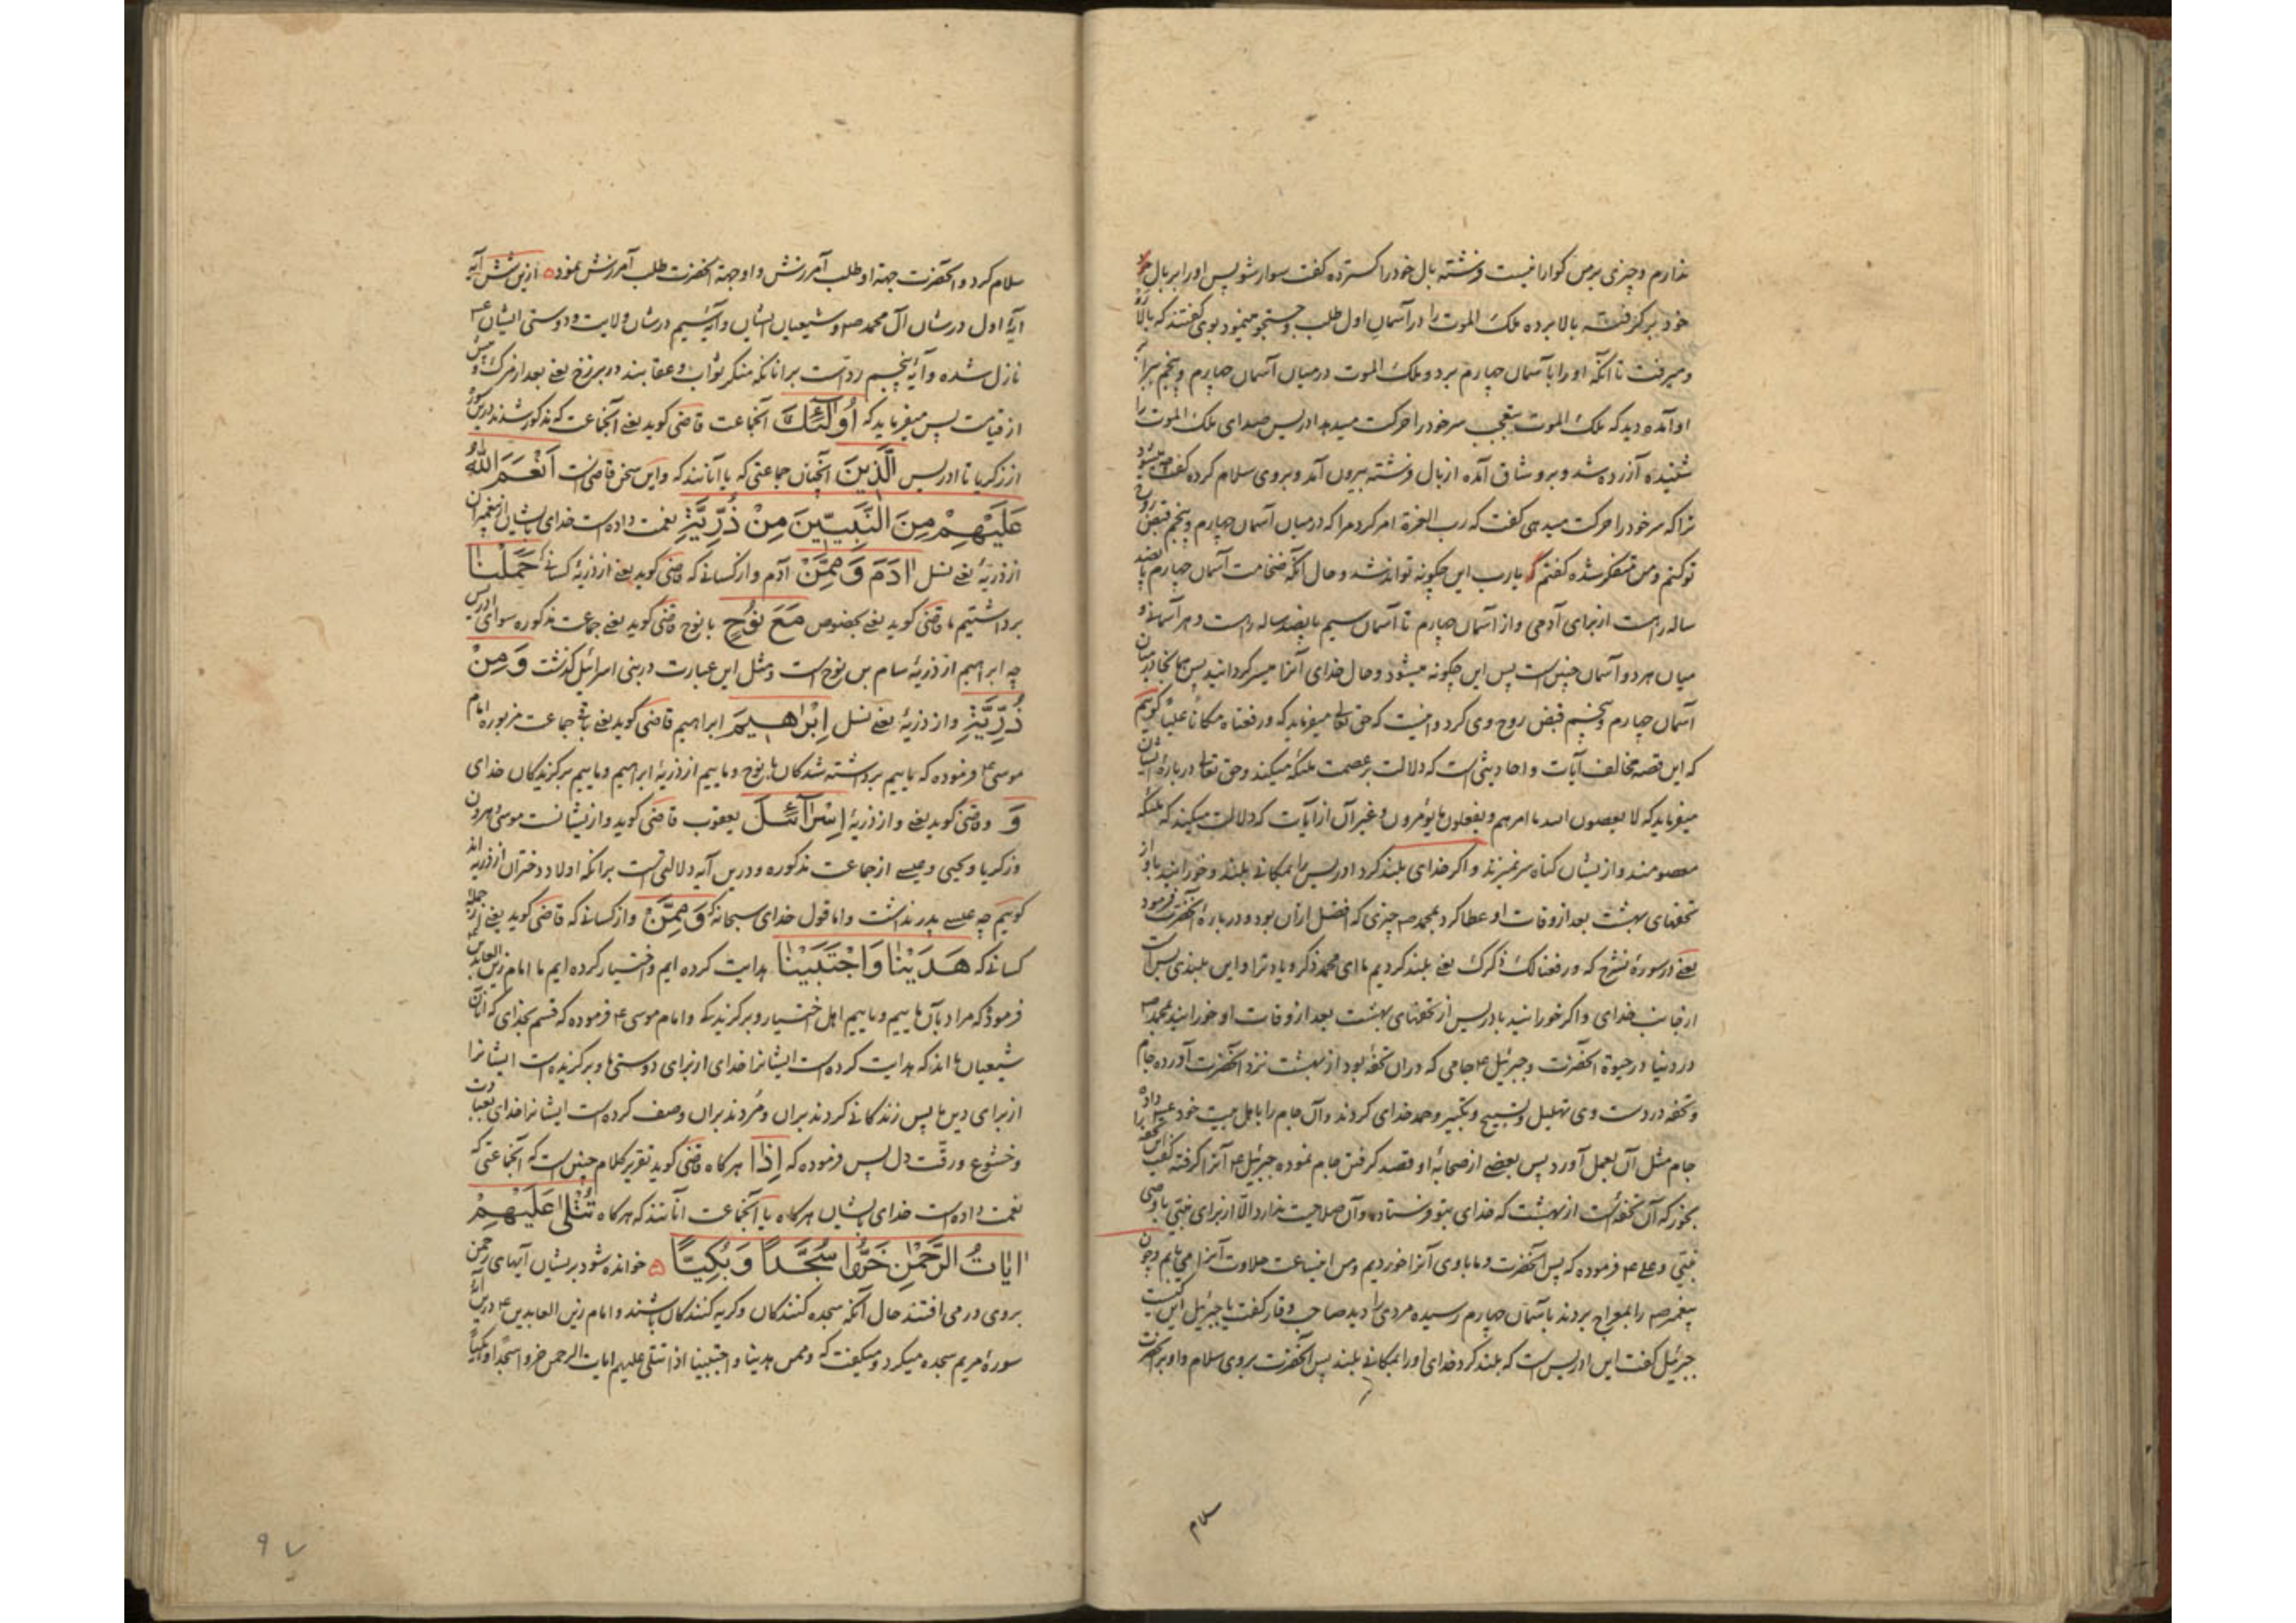 ندارم و چیزی بر من کوارا نیست فرشته بال خود را کسترده کفت سوار شو پس او را بر بال
خود بر کرفته بالا برده ملک الموت را در آسمان اول طلب و جستجو مینمود بوی کفتند که بالا
و میرفت تا آنکه او را بآسمان چهارم برد و ملک الموت در میان آسمان چهارم و پنجم
او آمده دید که ملک الموت بتعجب سر خود را حرکت میدهد ادریس صدای ملک الموت را
شنیده آزرده شد و برو شاق آمده از بال فرشته بیرون آمد و بروی سلام کرده کفت
ترا که سر خود را حرکت میدهی کفت که رب العزة امر کرد مرا که در میان آسمان چهارم و پنجم قبض روح
تو کنم و من متفکر شده کفتم که یا رب این چکونه تواند شد و حال آنکه ضخامت آسمان چهارم پانصد
ساله راهست از برای آدمی و از آسمان چهارم تا آسمان سیم پانصد ساله راهست و هر آسمانی و
میان هر دو آسمان چنین است پس این چکونه میشود و حال خدای آنرا میسر کردانید پس همانجا در میان
آسمان چهارم و پنجم قبض روح وی کرد و اینست که حق تعالی میفرماید که و رفعناه مکانا علیا کوییم
که این قصه مخالف آیات و احادیثی است که دلالت بر عصمت ملئکه میکند و حق تعالی در بارۀ ایشان
میفرماید که لا یعصون الله ما امرهم و یفعلون ما یؤمرون و غیر آن از آیات که دلالت میکنند که ملئکه
معصومند و از یشان کناه سر نمیزند و اکر خدای بلند کرد ادریس را بمکانی بلند و خورانید باو از
تحفهای بهشت بعد از وفات او عطا کرد بمحمد ص چیزی که افضل ازان بود و در بارۀ آنحضرت فرمود
یعنی در سورۀ نشرح که و رفعنا لک ذکرک یعنی بلند کردیم ما ای محمد ذکر و یاد ترا و این بلندی بس است
از جانب خدای و اکر خورانید بادریس از تحفهای بهشت بعد از وفات او خورانید بمحمد ص
در دنیا در حیوة آنحضرت و جبرئیل ع جامی که دران تحفه بود از بهشت نزد آنحضرت آورده جام
و تحفه در دست وی تهلیل و تسبیح و تکبیر و حمد خدای کردند و آن جام را باهل بیت خود داده
جام مثل آن بعمل آورد پس بعضی از صحابۀ او قصد کرفتن جام نموده جبرئیل ع آنرا کرفته کفت
بخور که آن تحفه است از بهشت که خدای بتو فرستاده و آن صلاحیت ندارد الا از برای نبی یا وصی
نبی و علی ع فرموده که پس آنحضرت و ما با وی آنرا خوردیم و من این ساعت حلاوت آنرا می یابم و چون
پیغمبر ص را بمعراج بردند بآسمان چهارم رسیده مردی را دید صاحب وقار کفت یا جبرئیل این کیست
جبرئیل کفت این ادریس است که بلند کرد خدای او را بمکانی بلند پس آنحضرت بروی سلام و او بر آنحضرت
سلام
سلام کرد و آنحضرت جهة او طلب آمرزش و او جهة آنحضرت طلب آمرزش نمود ازین شش آیه
آیۀ اول در شان آل محمد ص و شیعیان ایشان و آیۀ سیم در شان ولایت و دوستی ایشان ع
نازل شده و آیۀ پنجم رد است بر آنانکه منکر ثواب و عقابند در برزخ یعنی بعد از مرک و پیش
از قیامت پس میفرماید که أُولَٰئِكَ آنجماعت قاضی کوید یعنی آنجماعت که مذکور شدند درین سوره
از زکریا تا ادریس الَّذِينَ آنچنان جماعتی که یا آنانند که و این سخن قاضی است أَنْعَمَ اللَّهُ
عَلَيْهِمْ مِنَ النَّبِيِّينَ مِنْ ذُرِّيَّةِ نعمت داده است خدای بایشان از پیغمبران
از ذریۀ یعنی نسل آدَمَ وَمِمَّنْ آدم و از کسانی که قاضی کوید یعنی از ذریۀ کسانی که حَمَلْنَا
برداشتیم ما قاضی کوید یعنی بخصوص مَعَ نُوحٍ با نوح قاضی کوید یعنی جماعت مذکوره سوای ادریس
چه ابرهیم از ذریۀ سام بن نوح است و مثل این عبارت در بنی اسرائیل کذشت وَمِنْ
ذُرِّيَّةِ و از ذریۀ یعنی نسل إِبْرَاهِيمَ ابراهیم قاضی کوید یعنی باقی جماعت مزبوره امام
موسی ع فرموده که ماییم برداشته شدکان با نوح و ماییم از ذریۀ ابراهیم و ماییم برکزیدکان خدای
وَ و قاضی کوید یعنی و از ذریۀ إِسْرَائِيلَ یعقوب قاضی کوید و از یشانست موسی و هرون
و زکریا و یحیی و عیسی از جماعت مذکوره و درین آیه دلالتی است بر آنکه اولاد دختران از ذریه اند
کوییم چه عیسی پدر نداشت و اما قول خدای سبحانه که وَمِمَّنْ و از کسانی که قاضی کوید یعنی از جمله
کسانی که هَدَيْنَا وَاجْتَبَيْنَا هدایت کرده ایم و اختیار کرده ایم ما امام زین العابدین ع
فرموده که مراد بآن ماییم و ماییم اهل اختیار و برکزیدکی و امام موسی ع فرموده که قسم بخدای که آنان
شیعیان مااند که هدایت کرده است ایشانرا خدای از برای دوستی ما و برکزیده است ایشانرا
از برای دین ما پس زندکانی کردند بران و مردند بران وصف کرده است ایشانرا خدای بعبادت
و خشوع و رقت دل پس فرموده که إِذَا هر کاه قاضی کوید تقریر کلام چنین است که آنجماعتی که
نعمت داده است خدای بایشان هر کاه یا آنجماعت آنانند که هر کاه تُتْلَىٰ عَلَيْهِمْ
آيَاتُ الرَّحْمَٰنِ خَرُّوا سُجَّدًا وَبُكِيًّا خوانده شود بریشان آیهای رحمن
بروی در می افتند حال آنکه سجده کنندکان و کریه کنندکان باشند و امام زین العابدین ع درین آیۀ
سورۀ مریم سجده میکرد و میکفت که و ممن هدینا و اجتبینا اذا تتلی علیهم ایات الرحمن خروا سجدا و بکیا
۹۷